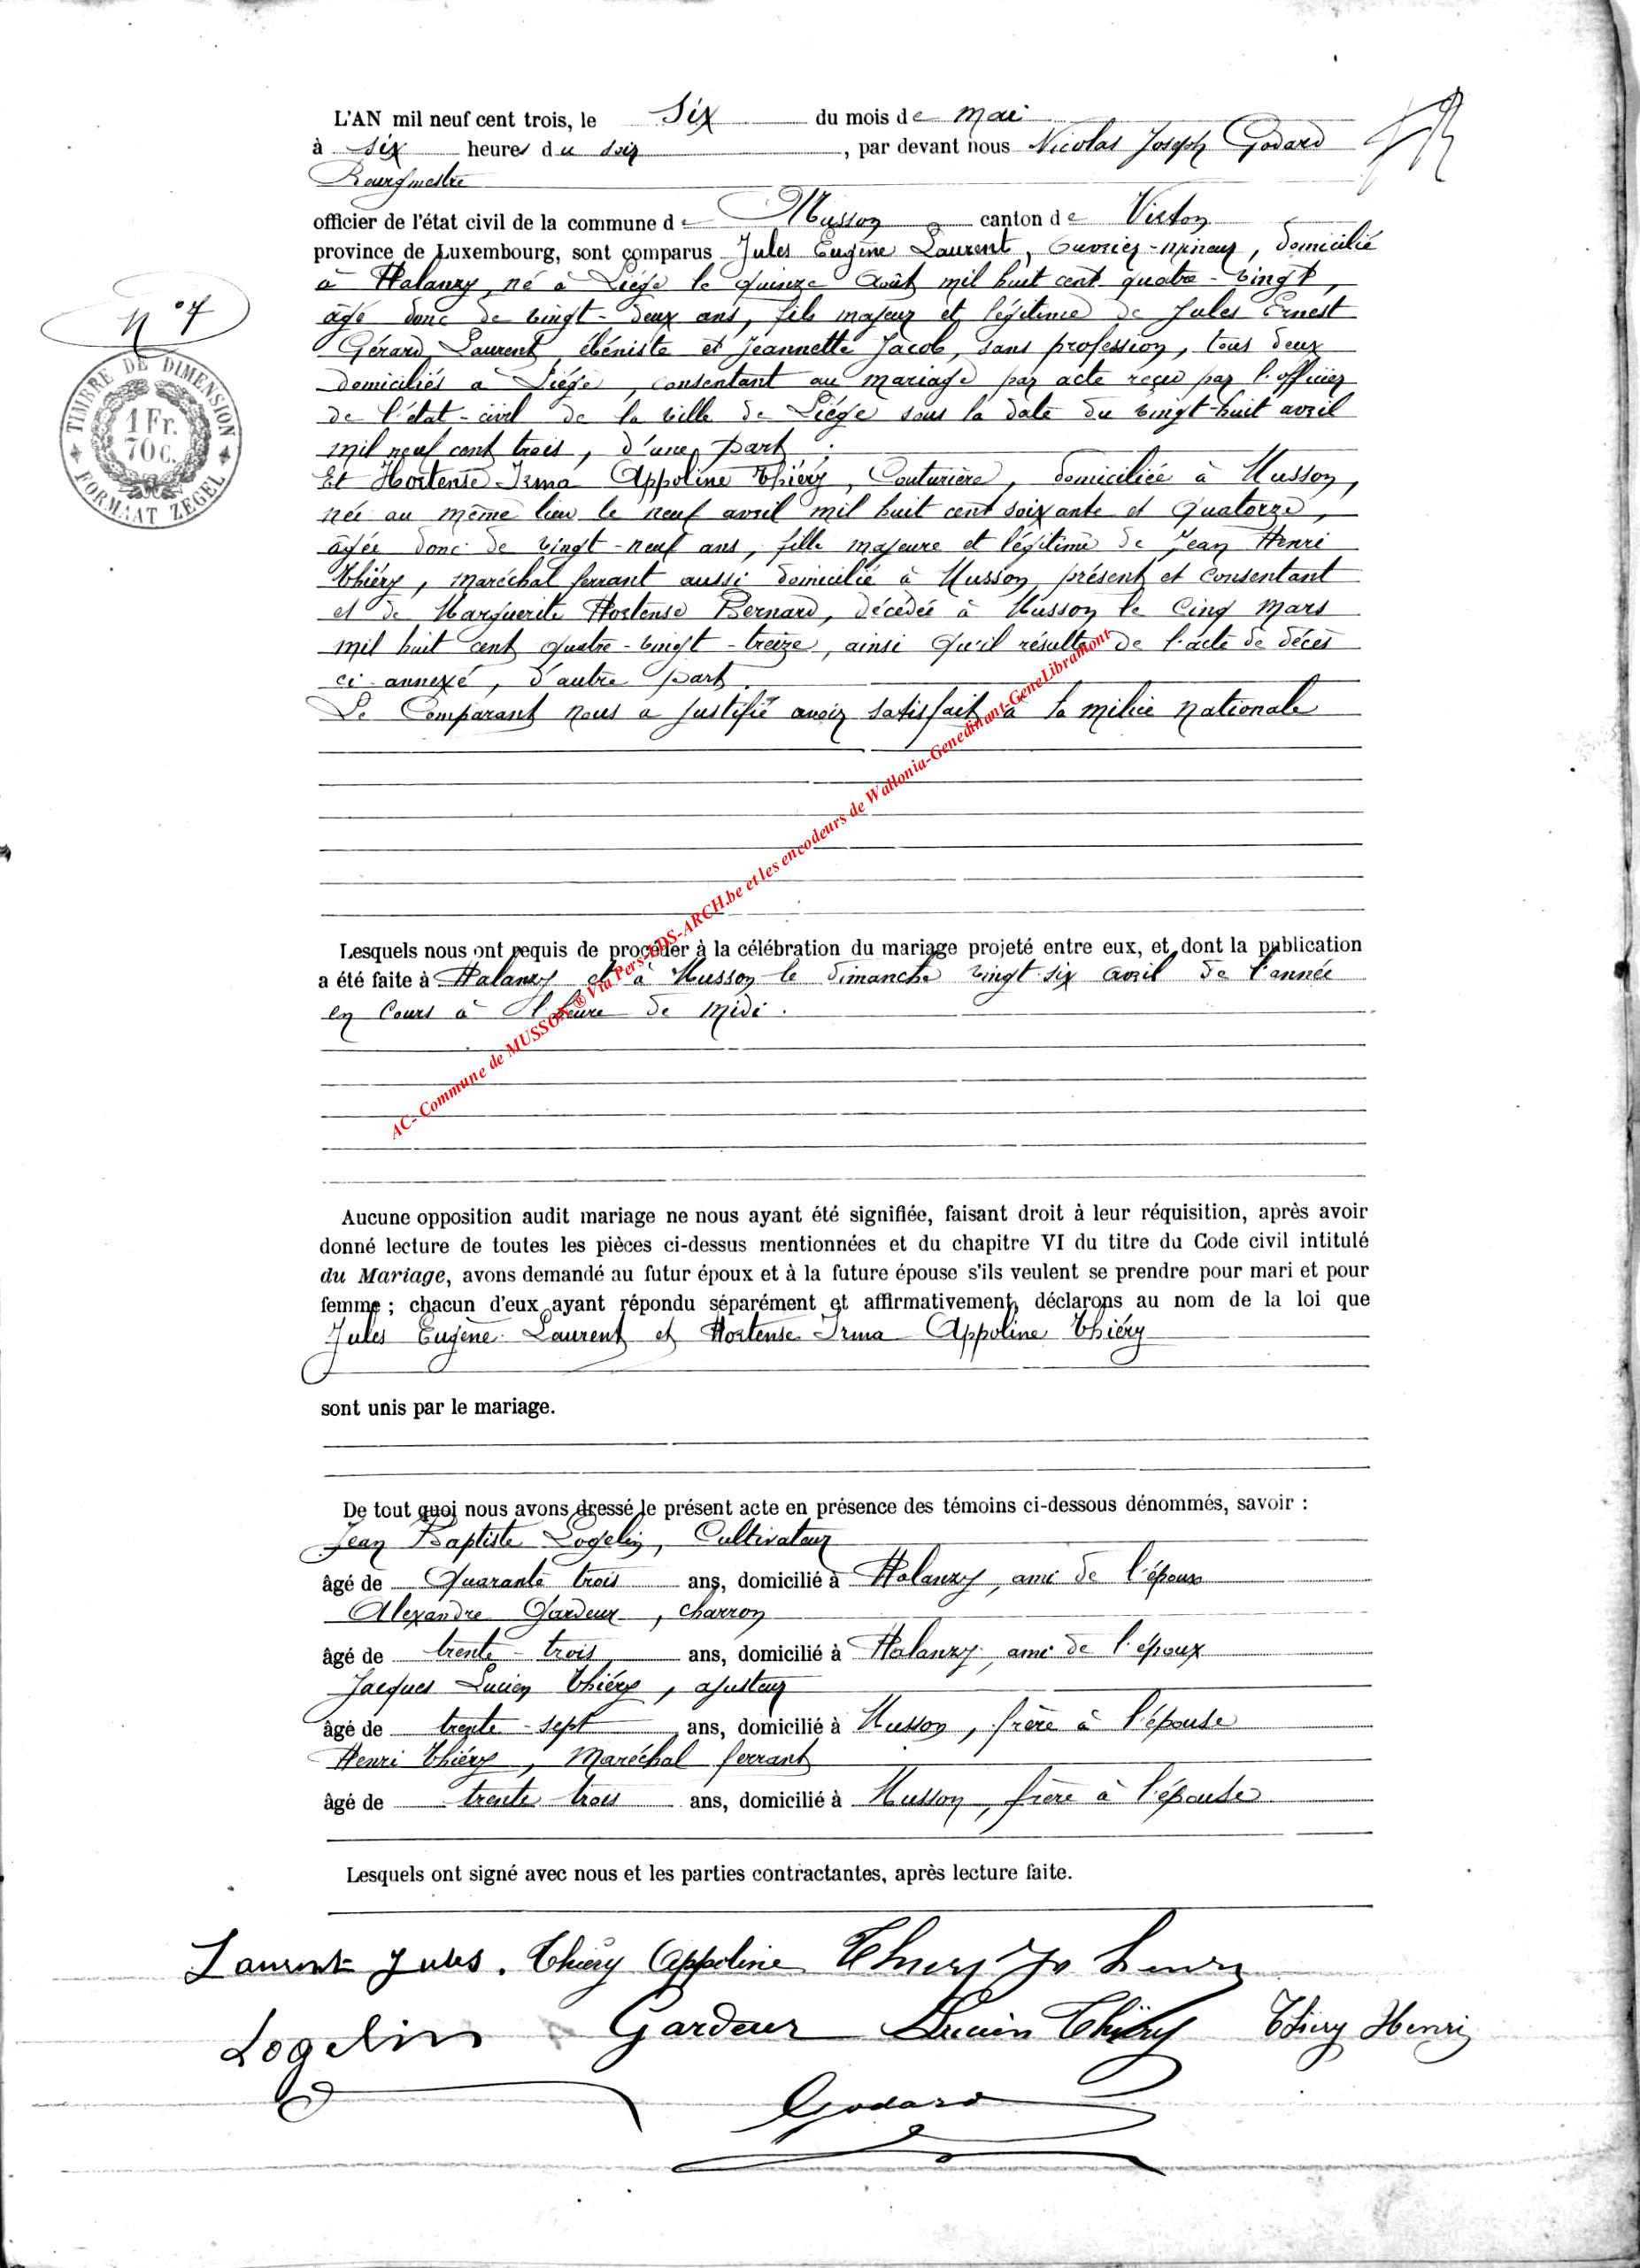 L'AN mil neuf cent trois, le six du mois de mai
à six heures du soir, par devant nous Nicolas Joseph Godard
Bourgmestre
officier de l'état civil de la commune de Musson canton de Virton
province de Luxembourg, sont comparus Jules Eugène Laurent, Ouvrier-mineur, domicilié
à Halanzy, né à Liége le quinze Août mil huit cent quatre-vingt,
âgé donc de vingt-deux ans, fils majeur et légitime de Jules Ernest
Gérard Laurent, ébéniste et Jeannette Jacob, sans profession, tous deux
domiciliés à Liége, consentant au mariage par acte reçu par l'officier
de l'état-civil de la ville de Liége sous la date du vingt-huit avril
mil neuf cent trois, d'une part ;
Et Hortense Irma Appoline Thiéry, Couturière, domiciliée à Musson,
née au même lieu le neuf avril mil huit cent soixante et quatorze,
âgée donc de vingt-neuf ans, fille majeure et légitime de Jean Henri
Thiéry, maréchal ferrant aussi domicilié à Musson, présent et consentant
et de Marguerite Hortense Bernard, décédée à Musson le cinq mars
mil huit cent quatre-vingt-treize, ainsi qu'il résulte de l'acte de décès
ci-annexé, d'autre part.
Le Comparant nous a justifié avoir satisfait à la milice nationale
n° 7
TIMBRE DE DIMENSION
1 Fr.
70 c.
FORMAAT ZEGEL
AC- Commune de MUSSON ® Via Pers-ADS-ARCH.be et les encodeurs de Wallonia-Genedinant-GeneLibramont
Lesquels nous ont requis de procéder à la célébration du mariage projeté entre eux, et dont la publication
a été faite à Halanzy et à Musson le dimanche vingt-six avril de l'année
en cours à l'heure de midi.
Aucune opposition audit mariage ne nous ayant été signifiée, faisant droit à leur réquisition, après avoir
donné lecture de toutes les pièces ci-dessus mentionnées et du chapitre VI du titre du Code civil intitulé
du Mariage, avons demandé au futur époux et à la future épouse s'ils veulent se prendre pour mari et pour
femme ; chacun d'eux ayant répondu séparément et affirmativement, déclarons au nom de la loi que
Jules Eugène Laurent et Hortense Irma Appoline Thiéry
sont unis par le mariage.
De tout quoi nous avons dressé le présent acte en présence des témoins ci-dessous dénommés, savoir :
Jean Baptiste Logelin, Cultivateur
âgé de Quarante trois ans, domicilié à Halanzy, ami de l'époux
Alexandre Gardeur, charron
âgé de trente-trois ans, domicilié à Halanzy, ami de l'époux
Jacques Lucien Thiéry, ajusteur
âgé de trente-sept ans, domicilié à Musson, frère à l'épouse
Henri Thiéry, Maréchal ferrant
âgé de trente-trois ans, domicilié à Musson, frère à l'épouse
Lesquels ont signé avec nous et les parties contractantes, après lecture faite.
Laurent Jules. Thiéry Appoline Thiery Jn henri
Logelin Gardeur Lucien Thiéry Thiery Henri
Godard